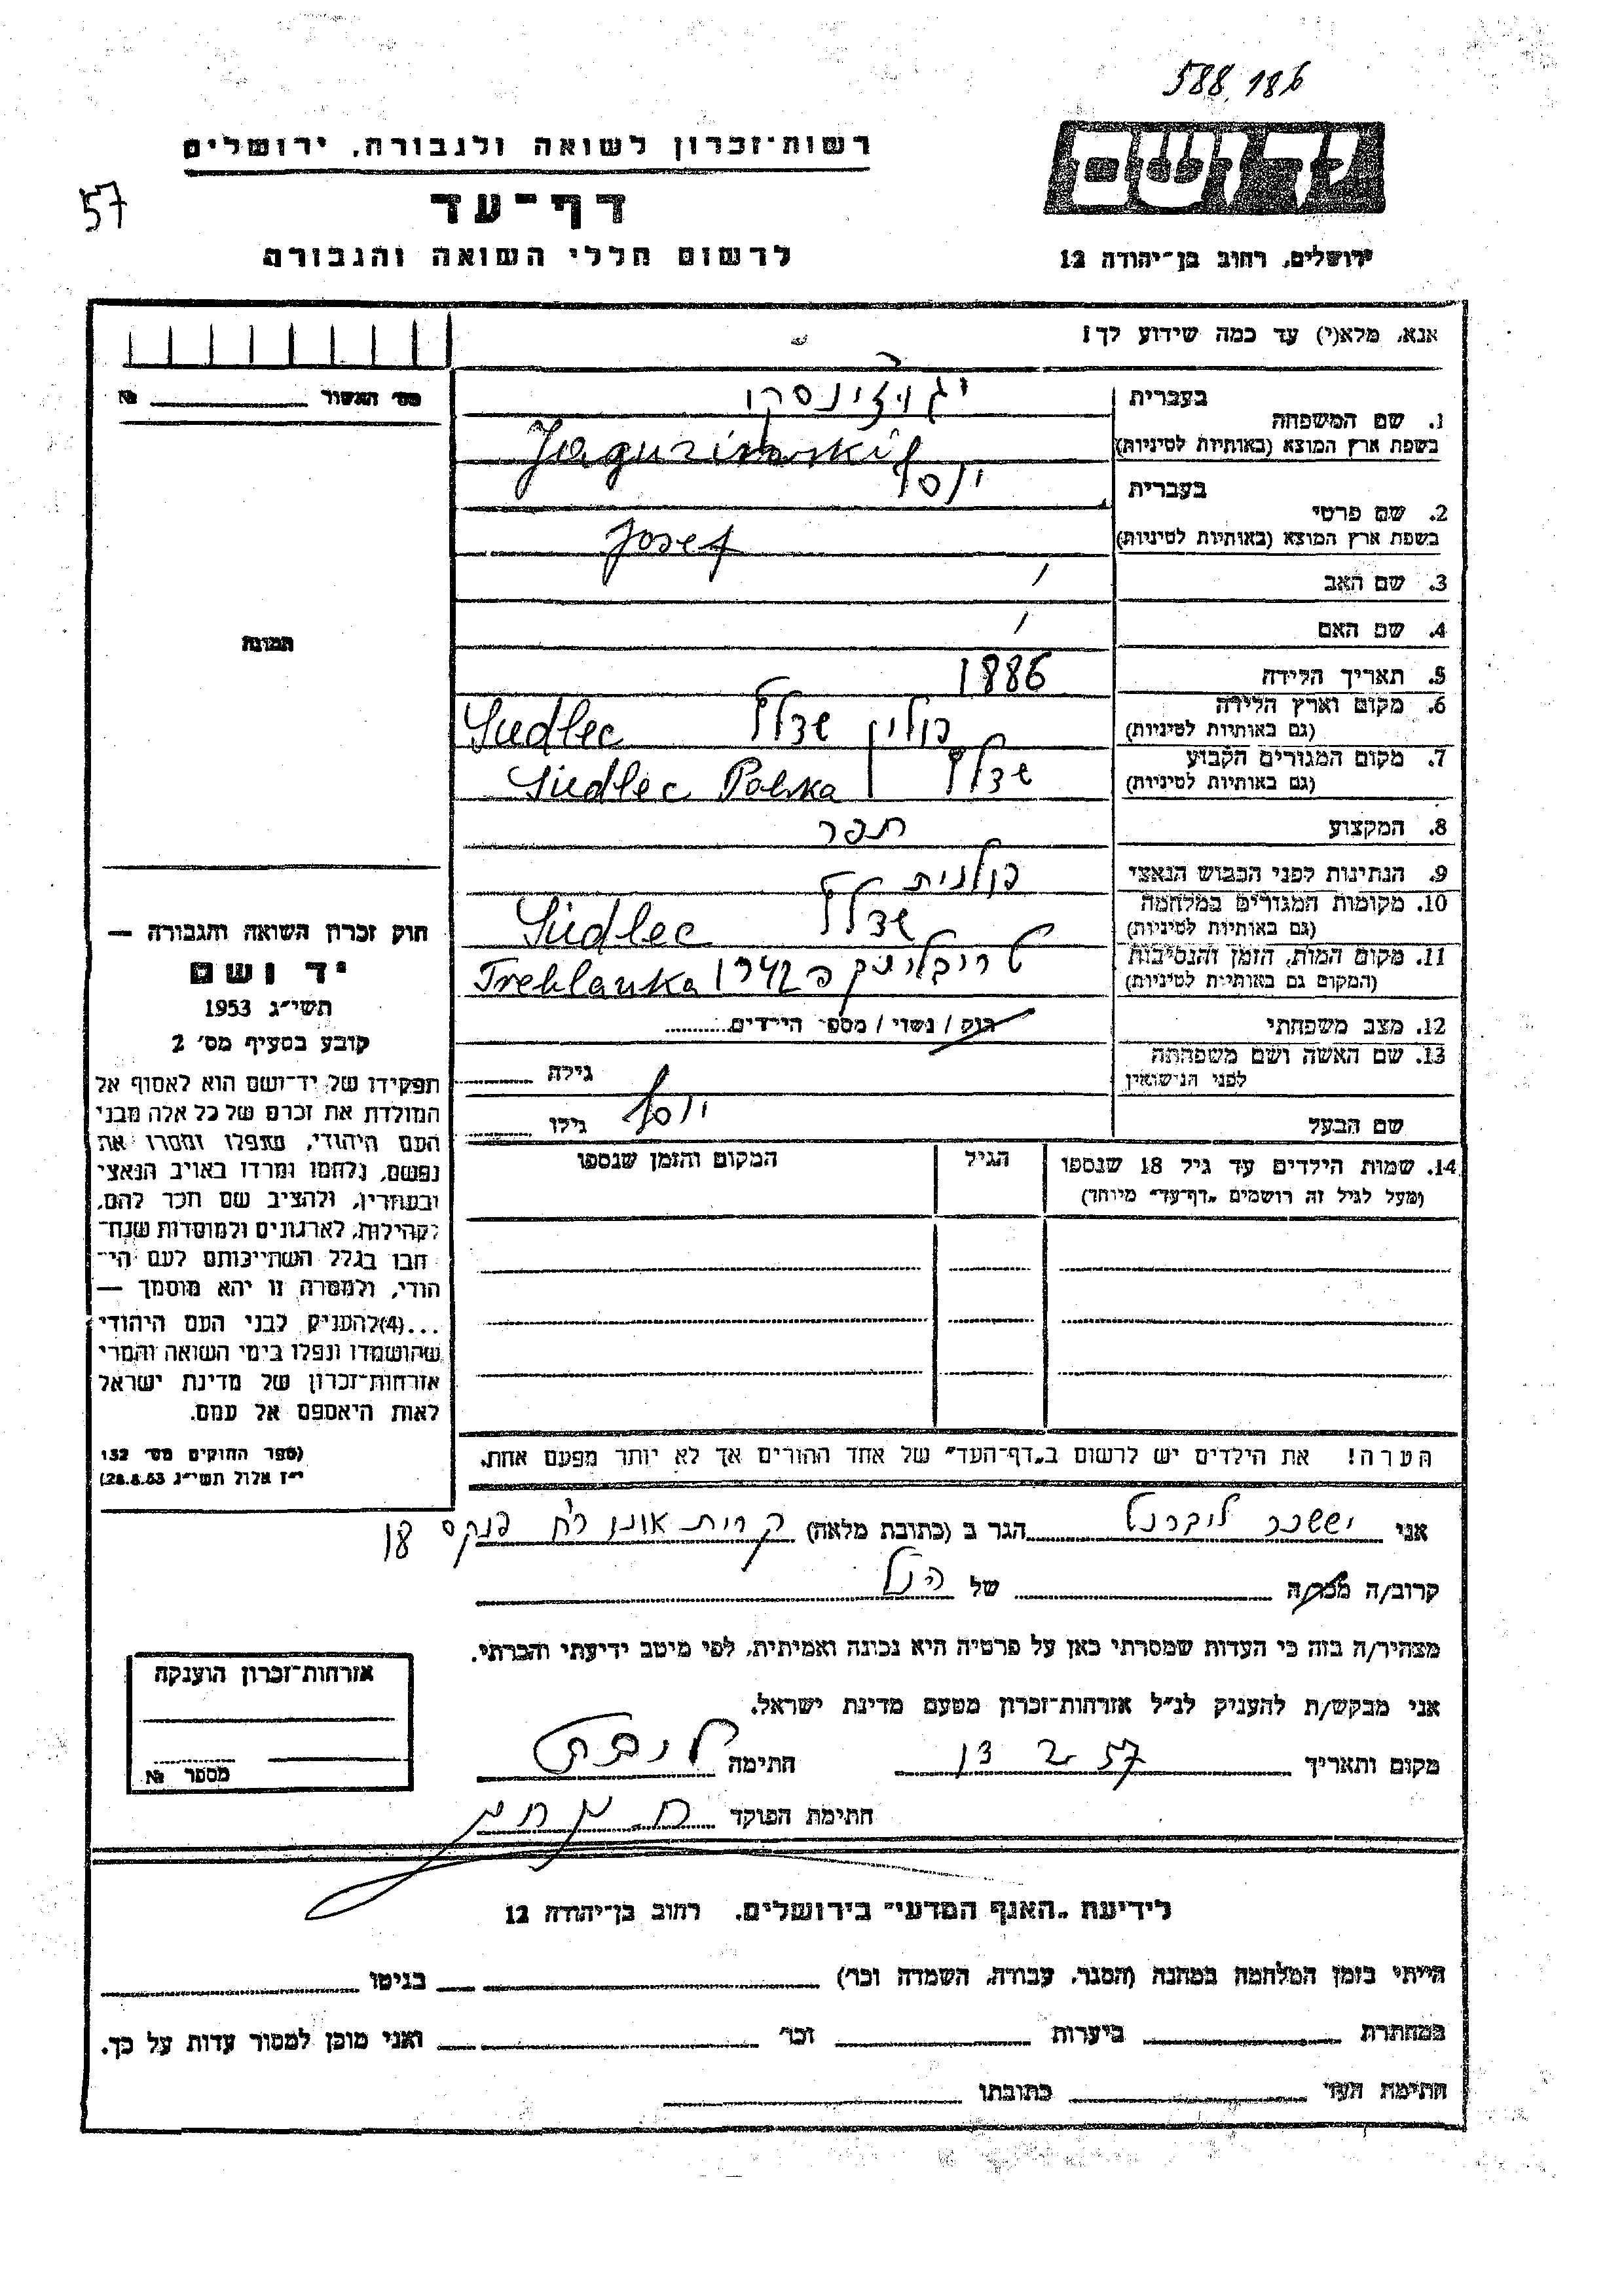 588.186
יד ושם
ירושלים, רחוב בן-יהודה 12
רשות-זכרון לשואה ולגבורה, ירושלים
דף-עד
57
לרשום חללי השואה והגבורה
אנא, מלא(י) עד כמה שידוע לך!
מס׳ האשור № 
תמונה
חוק זכרון השואה והגבורה —
יד ושם
תשי״ג 1953
קובע בסעיף מס׳ 2
תפקידו של יד-ושם הוא לאסוף אל
המולדת את זכרם של כל אלה מבני
העם היהודי, שנפלו ומסרו את
נפשם, נלחמו ומרדו באויב הנאצי
ובעוזריו, ולהציב שם וזכר להם,
לקהילות, לארגונים ולמוסדות שנח-
רבו בגלל השתייכותם לעם הי-
הודי, ולמטרה זו יהא מוסמך —
...(4)להעניק לבני העם היהודי
שהושמדו ונפלו בימי השואה והמרי
אזרחות-זכרון של מדינת ישראל
לאות היאספם אל עמם.
(ספר החוקים מס׳ 132
י״ז אלול תשי״ג 28.8.53)
1. שם המשפחה
בעברית
בשפת ארץ המוצא (באותיות לטיניות)
2. שם פרטי
בעברית יוסף
בשפת ארץ המוצא (באותיות לטיניות) Josef
3. שם האב /
4. שם האם /
5. תאריך הלידה 1886
6. מקום וארץ הלידה
(גם באותיות לטיניות) פולין שדלץ Siedlec
7. מקום המגורים הקבוע
(גם באותיות לטיניות) שדלץ Siedlec Polska
8. המקצוע תפר
9. הנתינות לפני הכבוש הנאצי פולנית
10. מקומות המגורים במלחמה
(גם באותיות לטיניות) שדלץ Siedlec
11. מקום המות, הזמן והנסיבות
(המקום גם באותיות לטיניות) טריבלינקה ב 1942
12. מצב משפחתי רוק / נשוי / מספר הילדים
13. שם האשה ושם משפחתה
לפני הנישואין גילה
שם הבעל יוסף גילו
14. שמות הילדים עד גיל 18 שנספו
(מעל לגיל זה רושמים „דף-עד״ מיוחד)
הגיל
המקום והזמן שנספו
הערה! את הילדים יש לרשום ב„דף-העד״ של אחד ההורים אך לא יותר מפעם אחת.
אני יששכר ליברנט הגר ב (כתובת מלאה) קרית אונו רח פנקס
קרוב/ה מכר/ה של הנ״ל
מצהיר/ה בזה כי העדות שמסרתי כאן על פרטיה היא נכונה ואמיתית, לפי מיטב ידיעתי והכרתי.
אני מבקש/ת להעניק לנ״ל אזרחות-זכרון מטעם מדינת ישראל.
מקום ותאריך 13 2 57 חתימה
חתימת הפוקד
אזרחות-זכרון הוענקה
מספר №
לידיעת „האגף המדעי״ בירושלים, רחוב בן-יהודה 12
הייתי בזמן המלחמה במחנה (הסגר, עבודה, השמדה וכר׳) בגיטו
במחתרת ביערות וכר׳ ואני מוכן למסור עדות על כך.
חתימת העד כתובתו